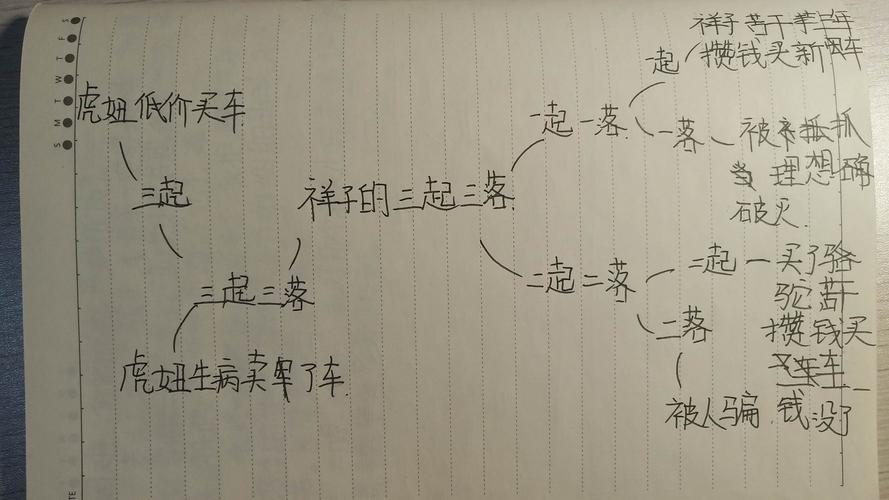 S M T W T F S
虎妞低价买车
三起
祥子的三起三落
三起三落
虎妞生病卖了车
一起一落
一起
祥子苦干三年
攒钱买新车
一落
被抓
理想
破灭
二起二落
二起
买了骆
驼苦干
攒钱买
车
二落
被人骗 钱没了